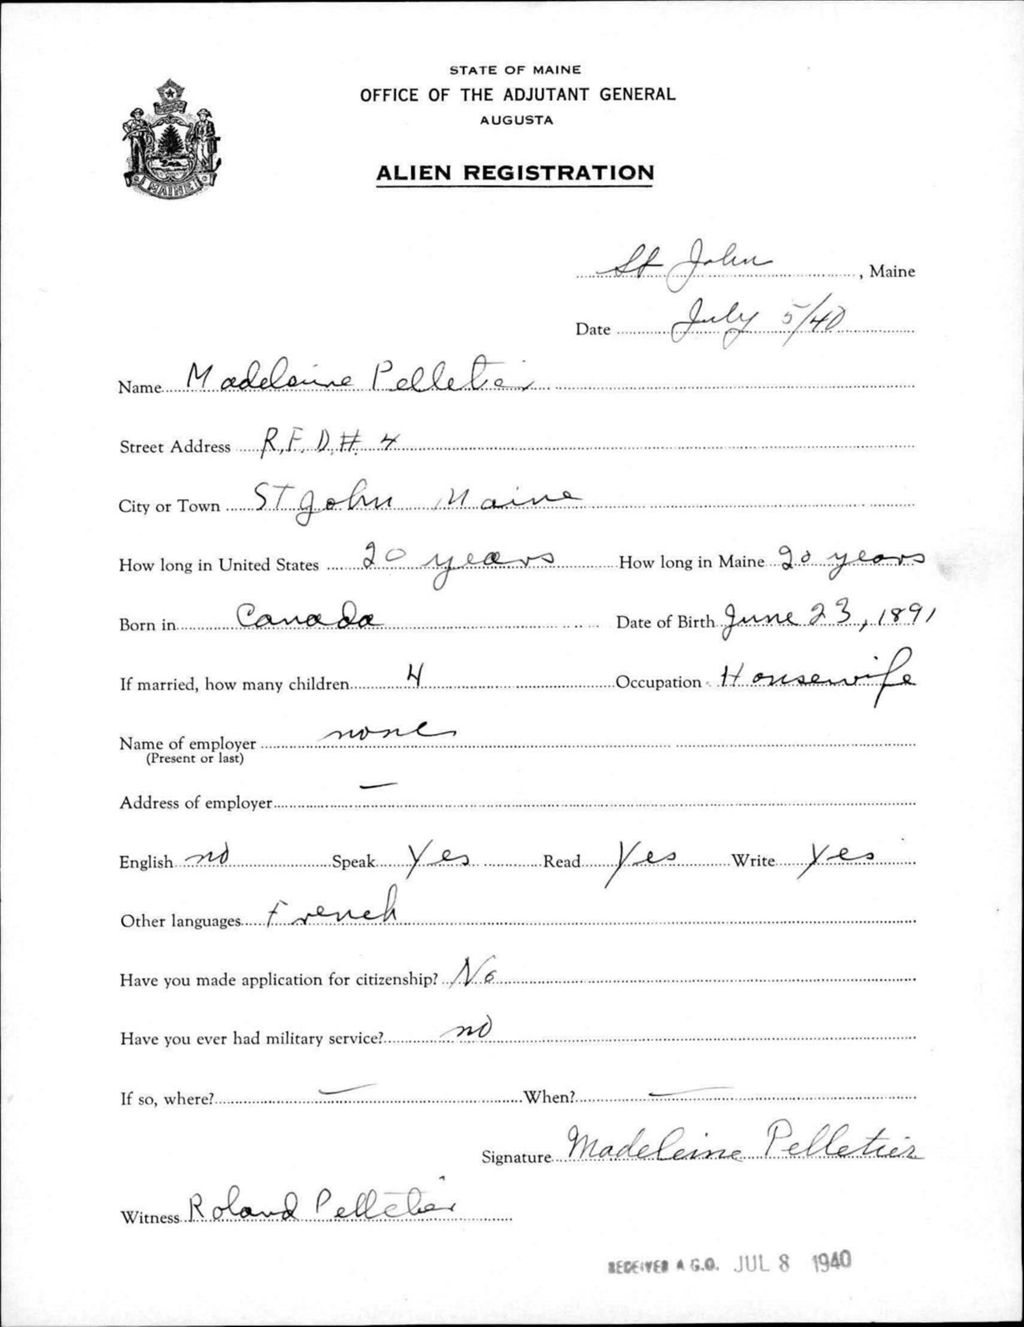 STATE OF MAINE
OFFICE OF THE ADJUTANT GENERAL
AUGUSTA
ALIEN REGISTRATION
MAINE
St John, Maine
Date July 5/40
Name Madeleine Pelletier
Street Address R.F.D.# 4
City or Town St John, Maine
How long in United States 20 years How long in Maine 20 years
Born in Canada Date of Birth June 23, 1891
If married, how many children 4 Occupation Housewife
Name of employer none
(Present or last)
Address of employer —
English no Speak Yes Read Yes Write Yes
Other languages French
Have you made application for citizenship? No
Have you ever had military service? no
If so, where? — When? —
Signature Madeleine Pelletier
Witness Roland Pelletier
RECEIVED A.G.O. JUL 8 1940